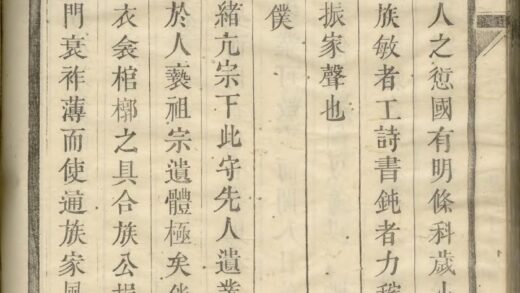 人之愆國有明條科歲
族敏者工詩書鈍者力
振家聲也
僕
緒亢宗下此守先人遺業
於人褻祖宗遺體極矣
衣衾棺槨之具合族公
門衰祚薄而使通族家風